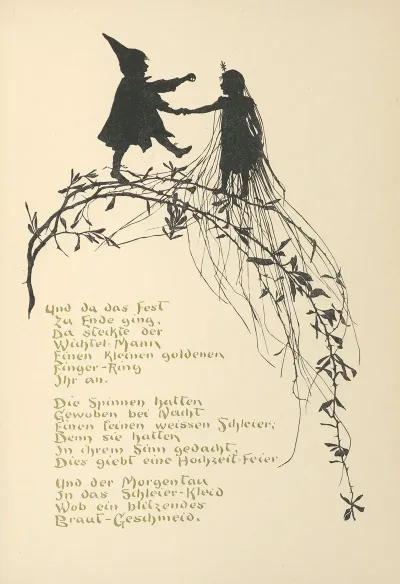 Und da das Fest
Zu Ende ging,
Da steckte der
Wichtel-Mann
Einen kleinen goldenen
Finger-Ring
Ihr an.
Die Spinnen hatten
Gewoben bei Nacht
Einen feinen weissen Schleier;
Denn sie hatten
In ihrem Sinn gedacht,
Dies giebt eine Hochzeit-Feier
Und der Morgentau
In das Schleier-Kleid
Wob ein blitzendes
Braut-Geschmeid.